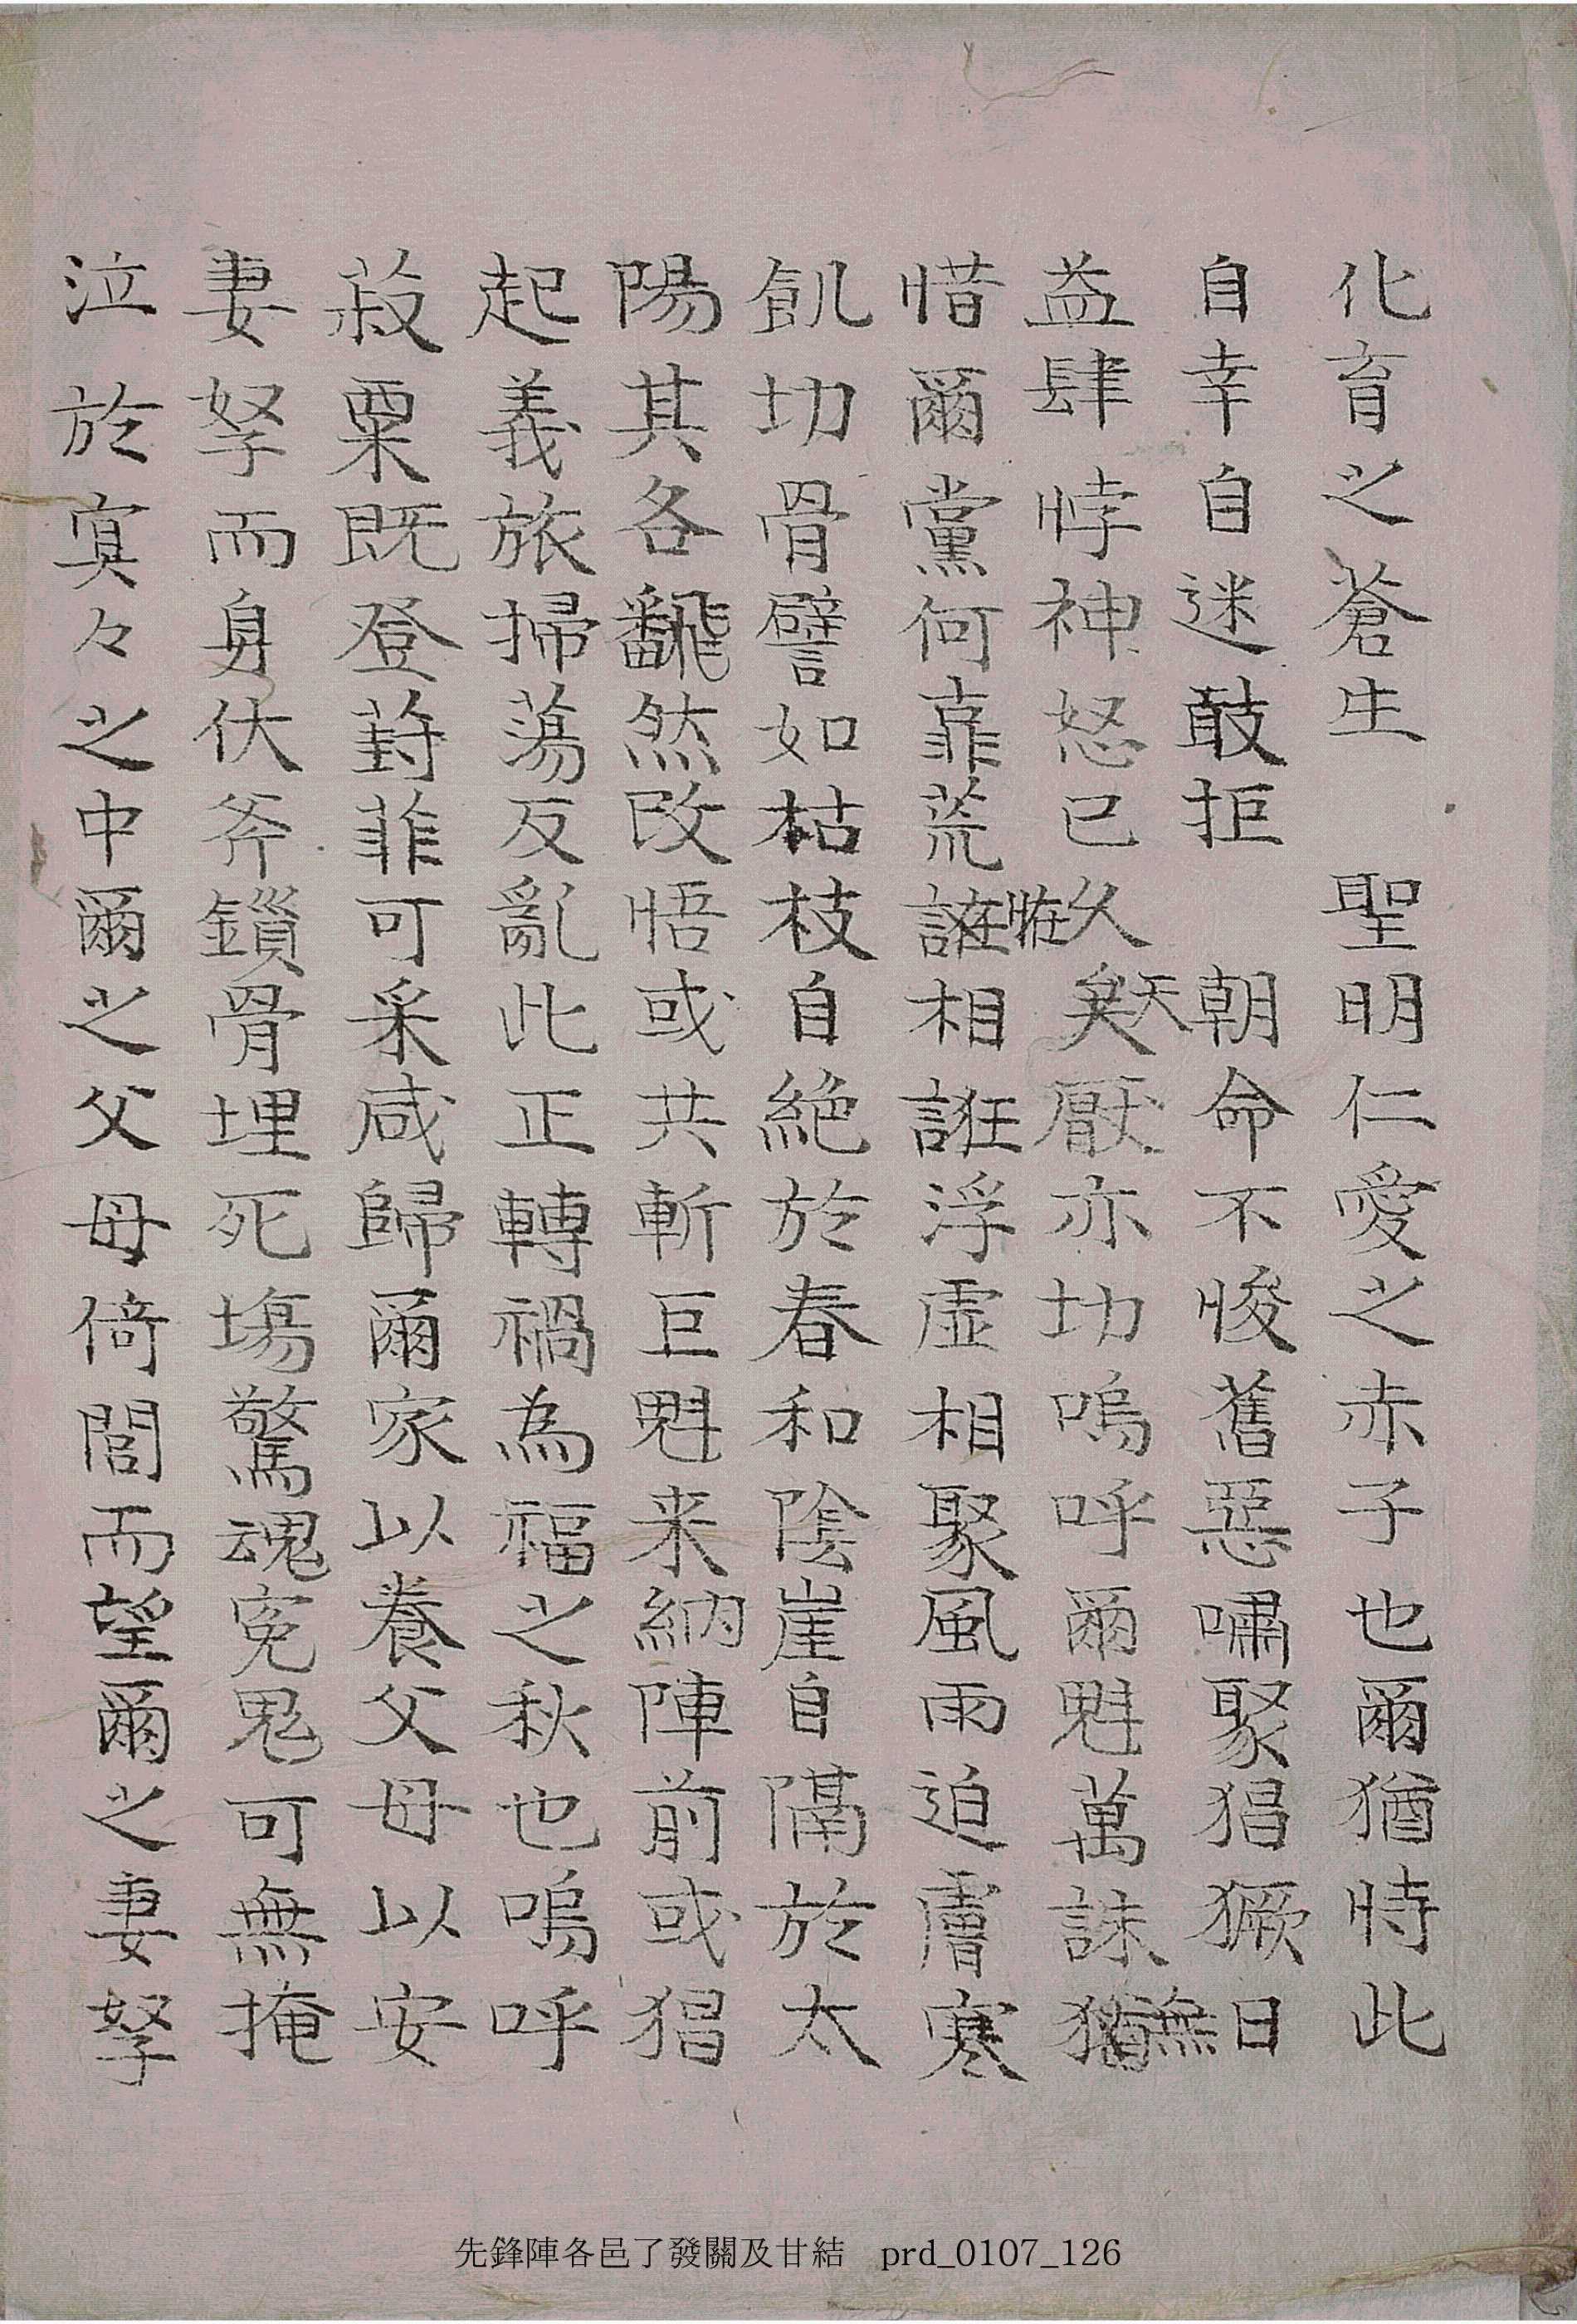 化育之蒼生 聖明仁愛之赤子也爾猶恃此
自幸自迷敢拒 朝命不悛舊惡嘯聚猖獗日
益肆悖神怒已久矣天厭亦切嗚呼爾魁萬誅猶無
惜爾黨何辜荒誑恠相誑浮虛相聚風雨迫膚寒
飢切骨譬如枯枝自絶於春和陰崖自隔於太
陽其各飜然改悟或共斬巨魁来納陣前或猖
起義旅掃蕩反亂此正轉禍為福之秋也嗚呼
菽粟既登葑菲可采咸歸爾家以養父母以安
妻孥而身伏斧鑕骨埋死場驚魂寃鬼可無掩
泣於寞々之中爾之父母倚閭而望爾之妻孥
先鋒陣各邑了發關及甘結 prd_0107_126